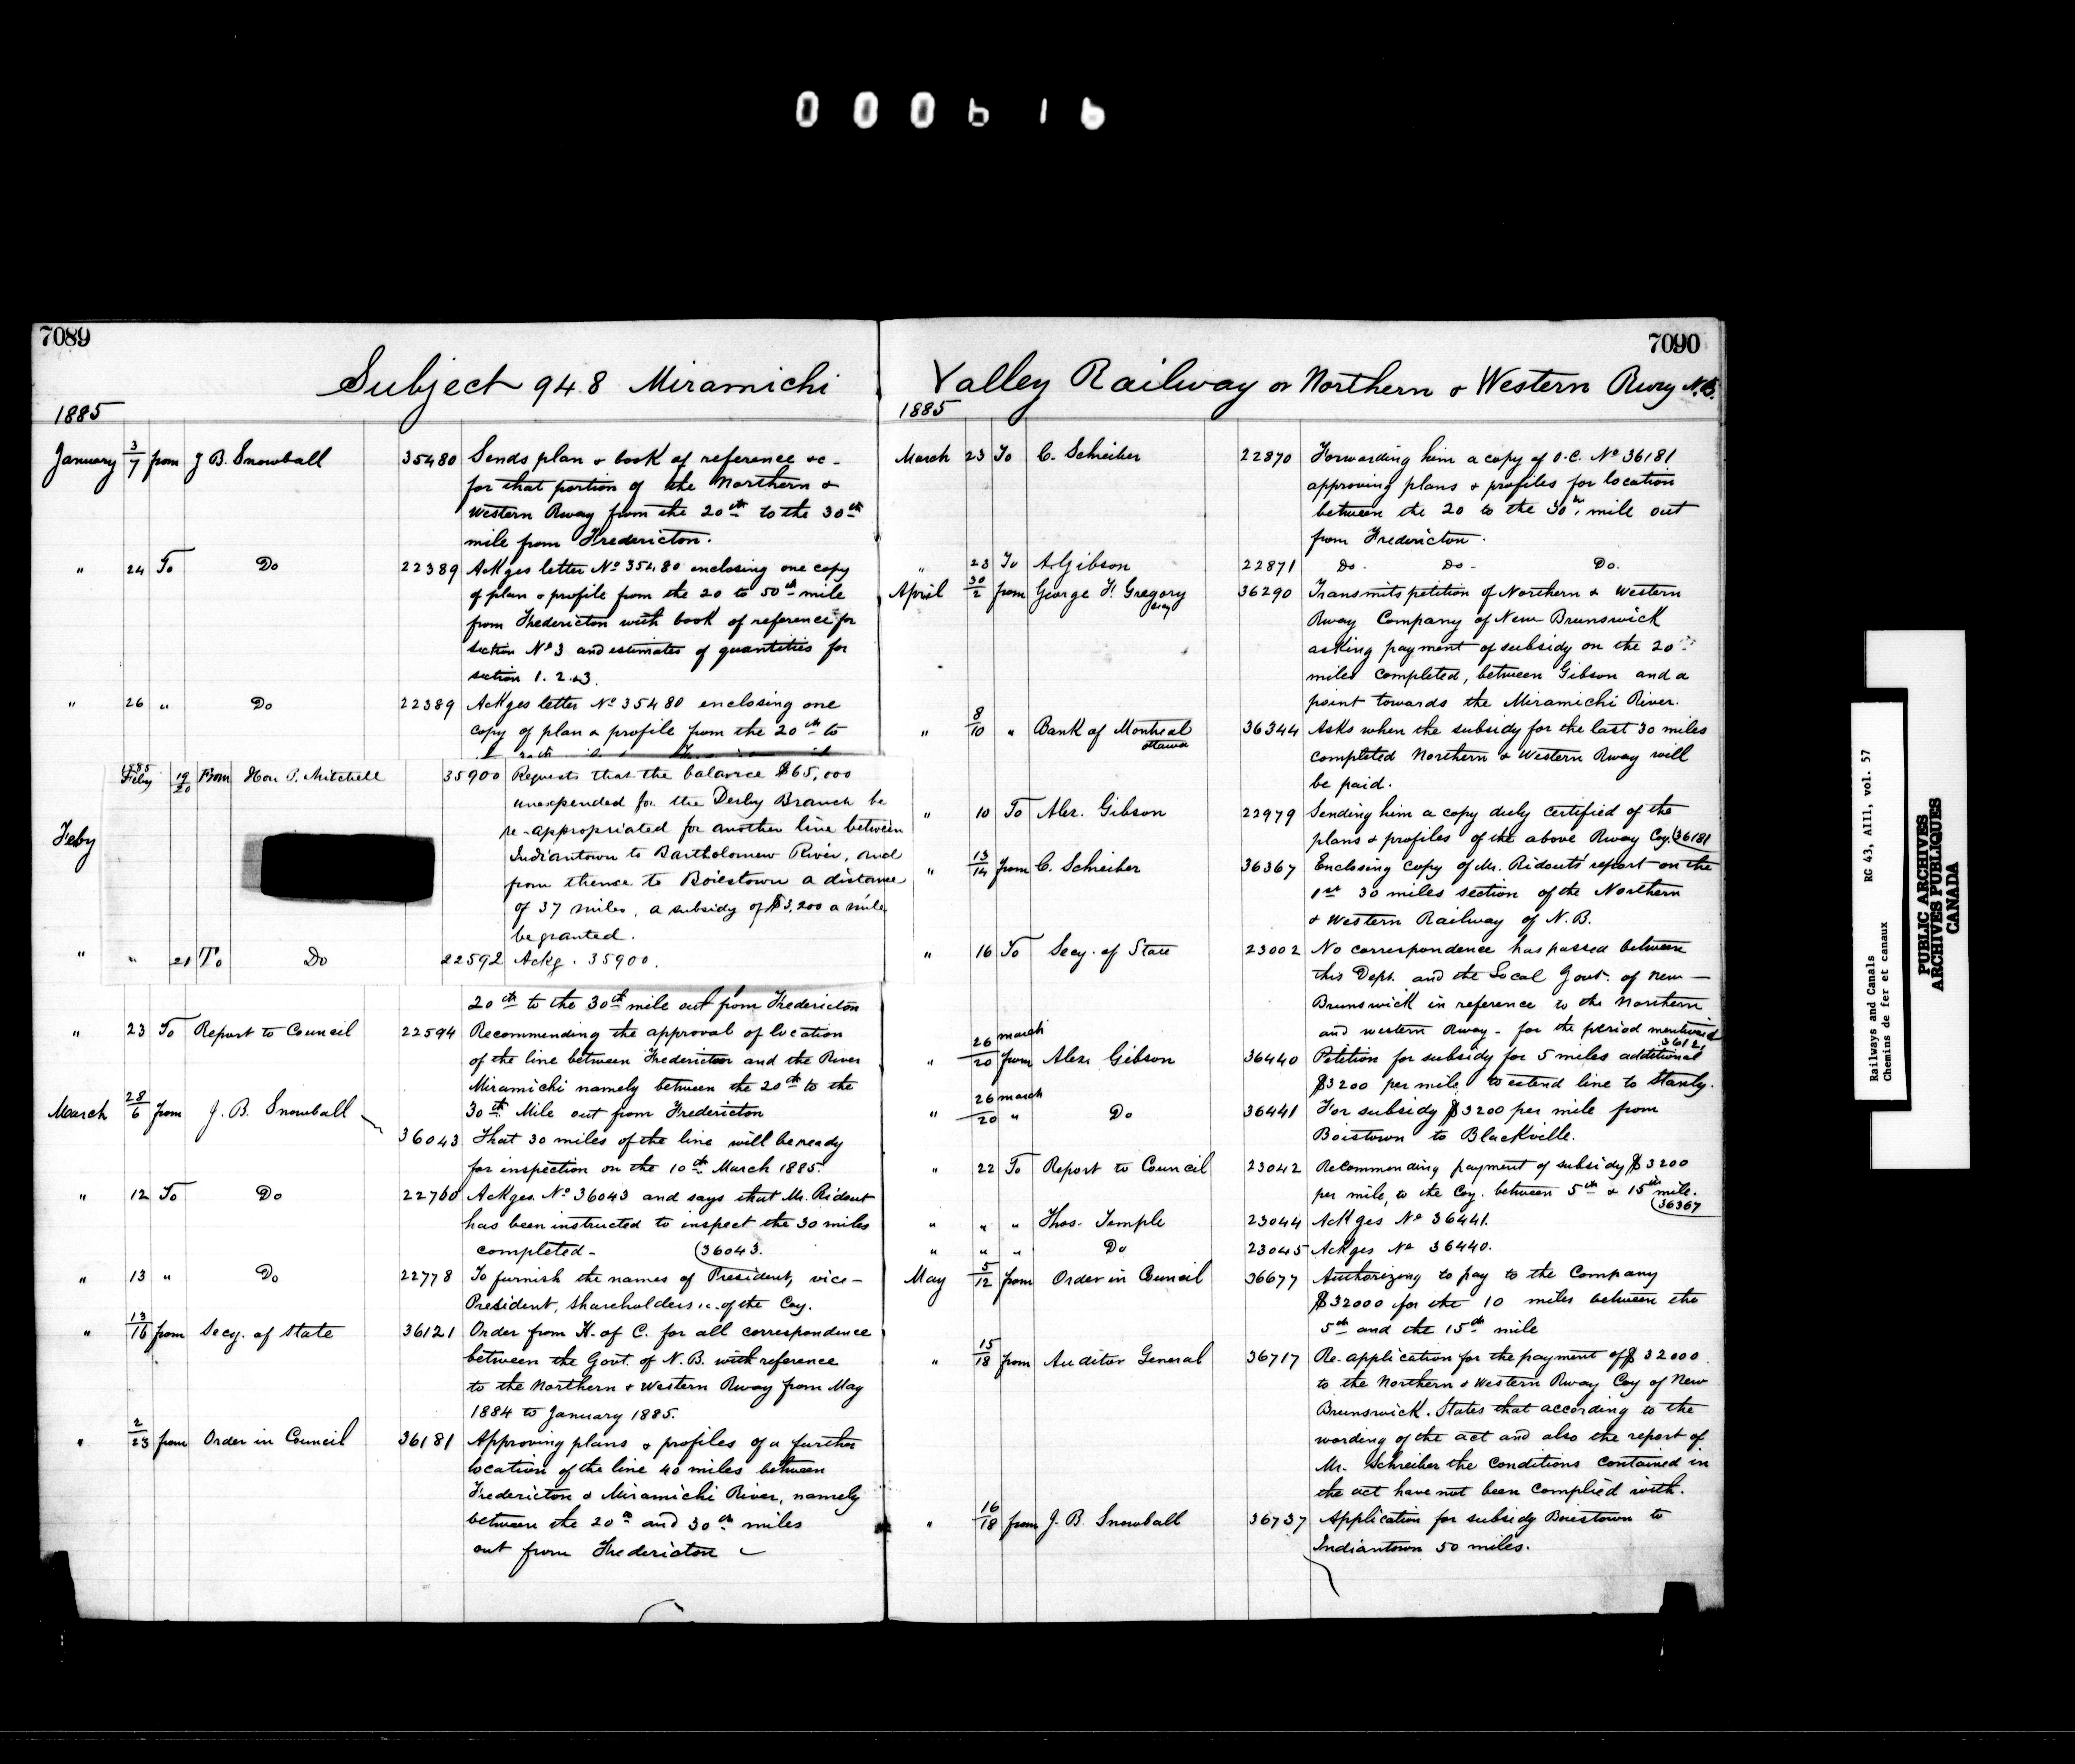 000616
7089
Subject 948 Miramichi
1885
January 3/7 from J B. Snowball 35480 Sends plan & book of reference &c -
for that portion of the Northern &
Western Rway from the 20th to the 30th
mile from Fredericton.
" 24 To Do 22389 Ackges letter No 35480 enclosing one copy
of plan & profile from the 20 to 50th mile
from Fredericton with book of reference for
section No 3 and estimates of quantities for
section 1. 2 & 3.
" 26 " Do 22389 Ackges letter No 35480 enclosing one
copy of plan & profile from the 20th to
1885
Feby 19/20 From Hon P. Mitchell 35900 Requests that the balance $65,000
unexpended for the Derby Branch be
re-appropriated for another line between
Feby
Indiantown to Bartholomew River, and
from thence to Boiestown a distance
of 37 miles, a subsidy of $3,200 a mile
be granted.
" " 21 To Do 22592 Ackg. 35900.
20th to the 30th mile out from Fredericton
" 23 To Report to Council 22594 Recommending the approval of location
of the line between Fredericton and the River
Miramichi namely between the 20th to the
March 28/6 from J. B. Snowball 30th Mile out from Fredericton
36043 That 30 miles of the line will be ready
for inspection on the 10th March 1885.
" 12 To Do 22760 Ackges. No 36043 and says that Mr. Ridout
has been instructed to inspect the 30 miles
completed - (36043.
" 13 " Do 22778 To furnish the names of President, vice-
President, shareholders &c. of the Coy.
" 13/16 from Secy. of State 36121 Order from H. of C. for all correspondence
between the Govt. of N. B. with reference
to the Northern & Western Rway from May
1884 to January 1885.
" 2/23 from Order in Council 36181 Approving plans & profiles of a further
location of the line 40 miles between
Fredericton & Miramichi River, namely
between the 20th and 30th miles
out from Fredericton
7090
Valley Railway or Northern & Western Rwy N.B.
1885
March 23 To C. Schreiber 22870 Forwarding him a copy of O.C. No 36181
approving plans & profiles for location
between the 20 to the 30th mile out
from Fredericton.
" 23 To A. Gibson 22871 Do. Do - Do.
April 30/2 from George F. Gregory 36290 Transmits petition of Northern & Western
Rway Company of New Brunswick
asking payment of subsidy on the 20
miles completed, between Gibson and a
point towards the Miramichi River.
" 8/10 " Bank of Montreal Ottawa 36344 Asks when the subsidy for the last 30 miles
completed Northern & Western Rway will
be paid.
" 10 To Alex. Gibson 22979 Sending him a copy duly certified of the
plans & profiles of the above Rway Coy. (36181
" 13/14 from C. Schreiber 36367 Enclosing copy of Mr. Ridouts' report on the
1st 30 miles section of the Northern
& Western Railway of N.B.
" 16 To Secy. of State 23002 No correspondence has passed between
this Dept. and the Local Govt. of New -
Brunswick in reference to the Northern
and western Rway - for the period mentioned
36121
" 26 march/20 from Alex. Gibson 36440 Petition for subsidy for 5 miles additional
$3200 per mile to extend line to Stanly.
" 26 march/20 " Do 36441 For subsidy $3200 per mile from
Boistown to Blackville.
" 22 To Report to Council 23042 Recommending payment of subsidy $3200
per mile, to the Coy. between 5th & 15th mile.
(36367
" " " Thos. Temple 23044 Ackges No 36441.
" " " Do 23045 Ackges No 36440.
May 5/12 from Order in Council 36677 Authorizing to pay to the Company
$32000 for the 10 miles between the
5th and the 15th mile
" 15/18 from Auditor General 36717 Re-application for the payment of $32000.
to the Northern & Western Rway Coy of New
Brunswick. States that according to the
wording of the act and also the report of
Mr. Schreiber the conditions contained in
the act have not been complied with.
" 16/18 from J. B. Snowball 36737 Application for subsidy Boiestown to
Indiantown 50 miles.
Railways and Canals RG 43, AIII, vol. 57
Chemins de fer et canaux
PUBLIC ARCHIVES
ARCHIVES PUBLIQUES
CANADA